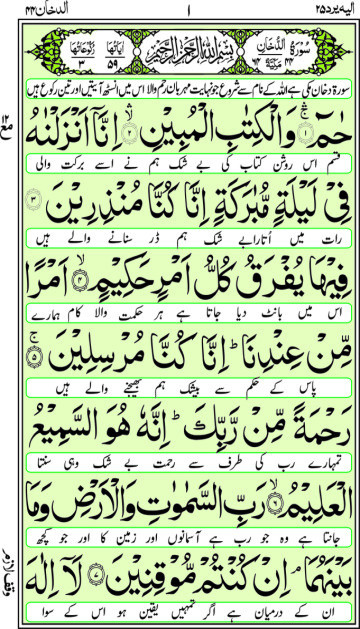 الیہ یرد ۲۵ ۱ الدخان ۴۴
سُوْرَةُ الدُّخَانِ مَكِّيَّةٌ ۴۴ ۶۴ بِسْمِ اللّٰهِ الرَّحْمٰنِ الرَّحِيْمِ اٰیَاتُهَا ۵۹ رُكُوْعَاتُهَا ۳
سورۃ دخان مکی ہے اللہ کے نام سے شروع جو نہایت مہربان رحم والا اس میں انسٹھ آیتیں اور تین رکوع ہیں
حٰمٓ ۚ۝۱ وَالْكِتٰبِ الْمُبِيْنِ ۝۲ اِنَّاۤ اَنْزَلْنٰهُ
قسم اس روشن کتاب کی بے شک ہم نے اسے برکت والی
فِيْ لَيْلَةٍ مُّبٰرَكَةٍ اِنَّا كُنَّا مُنْذِرِيْنَ ۝۳
رات میں اُتارا بے شک ہم ڈر سنانے والے ہیں
فِيْهَا يُفْرَقُ كُلُّ اَمْرٍ حَكِيْمٍ ۝۴ اَمْرًا
اس میں بانٹ دیا جاتا ہے ہر حکمت والا کام ہمارے
مِّنْ عِنْدِنَا ؕ اِنَّا كُنَّا مُرْسِلِيْنَ ۚ۝۵
پاس کے حکم سے بیشک ہم بھیجنے والے ہیں
رَحْمَةً مِّنْ رَّبِّكَ ؕ اِنَّهٗ هُوَ السَّمِيْعُ
تمہارے رب کی طرف سے رحمت بے شک وہی سنتا
الْعَلِيْمُ ۝۶ رَبِّ السَّمٰوٰتِ وَالْاَرْضِ وَمَا
جانتا ہے وہ جو رب ہے آسمانوں اور زمین کا اور جو کچھ
بَيْنَهُمَا ۘ اِنْ كُنْتُمْ مُّوْقِنِيْنَ ۝۷ لَاۤ اِلٰهَ
ان کے درمیان ہے اگر تمہیں یقین ہو اس کے سوا
مع ۱۲
وقف لازم